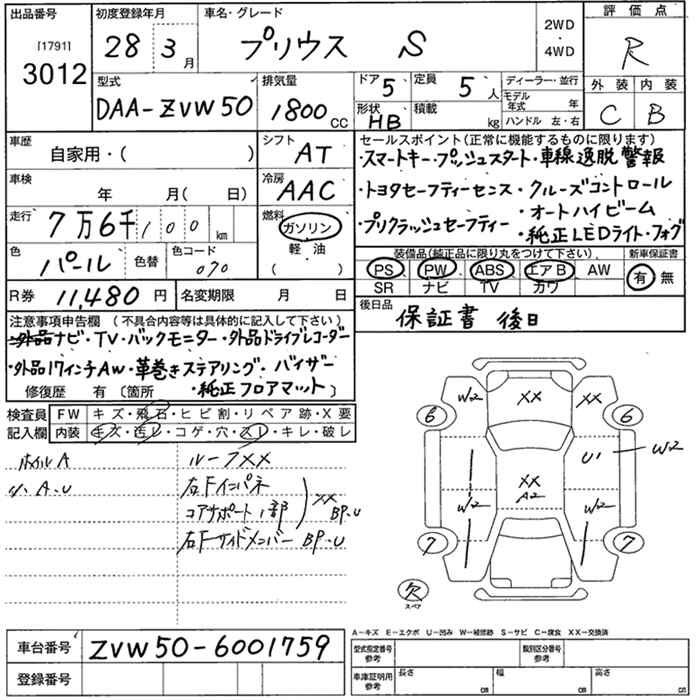 出品番号 初度登録年月 車名・グレード 2WD 評価点
[1791] 28 3月 プリウス S ・ R
3012 4WD
型式 排気量 ドア 5 定員 5人 ディーラー・並行 外装 内装
DAA-ZVW50 1800CC 形状 HB 積載 kg モデル年式 年 C B
ハンドル 左・右
車歴 シフト セールスポイント(正常に機能するものに限ります)
自家用・( ) AT ・スマートキー・プッシュスタート・車線逸脱警報
車検 冷房 ・トヨタセーフティーセンス・クルーズコントロール
年 月( 日) AAC ・オートハイビーム
走行 燃料 ・プリクラッシュセーフティー
7万6千100km ガソリン ・純正LEDライト・フォグ
色 色替 色コード 軽油 装備品(純正品に限り丸をつけて下さい) 新車保証書
パール 070 ( ) PS PW ABS エアB AW 有 無
SR ナビ TV カワ
R券 11,480円 名変期限 月 日 後日品
保証書 後日
注意事項申告欄 (不具合内容等は具体的に記入して下さい)
・外品ナビ・TV・バックモニター・外品ドライブレコーダー
・外品17インチAW・革巻きステアリング・バイザー
修復歴 有(箇所 ・純正フロアマット)
検査員 FW キズ・飛石・ヒビ割・リペア跡・X要
記入欄 内装 キズ・汚レ・コゲ・穴・スレ・キレ・破レ
ホイルA ルーフXX
A.U 右Fインパネ
コアサポート1部 XX
BP.U
右FサイドメンバーBP.U
W2 XX XX
6 6
U1 W2
XX
A2
W2 W2
7 7
欠
スペア
A－キズ E－エクボ U－凹み W－補修跡 S－サビ C－腐食 XX－交換済
車台番号 ZVW50-6001759 型式指定番号 参考 類別区分番号 参考
登録番号 車庫証明用 参考 長さ cm 幅 cm 高さ cm